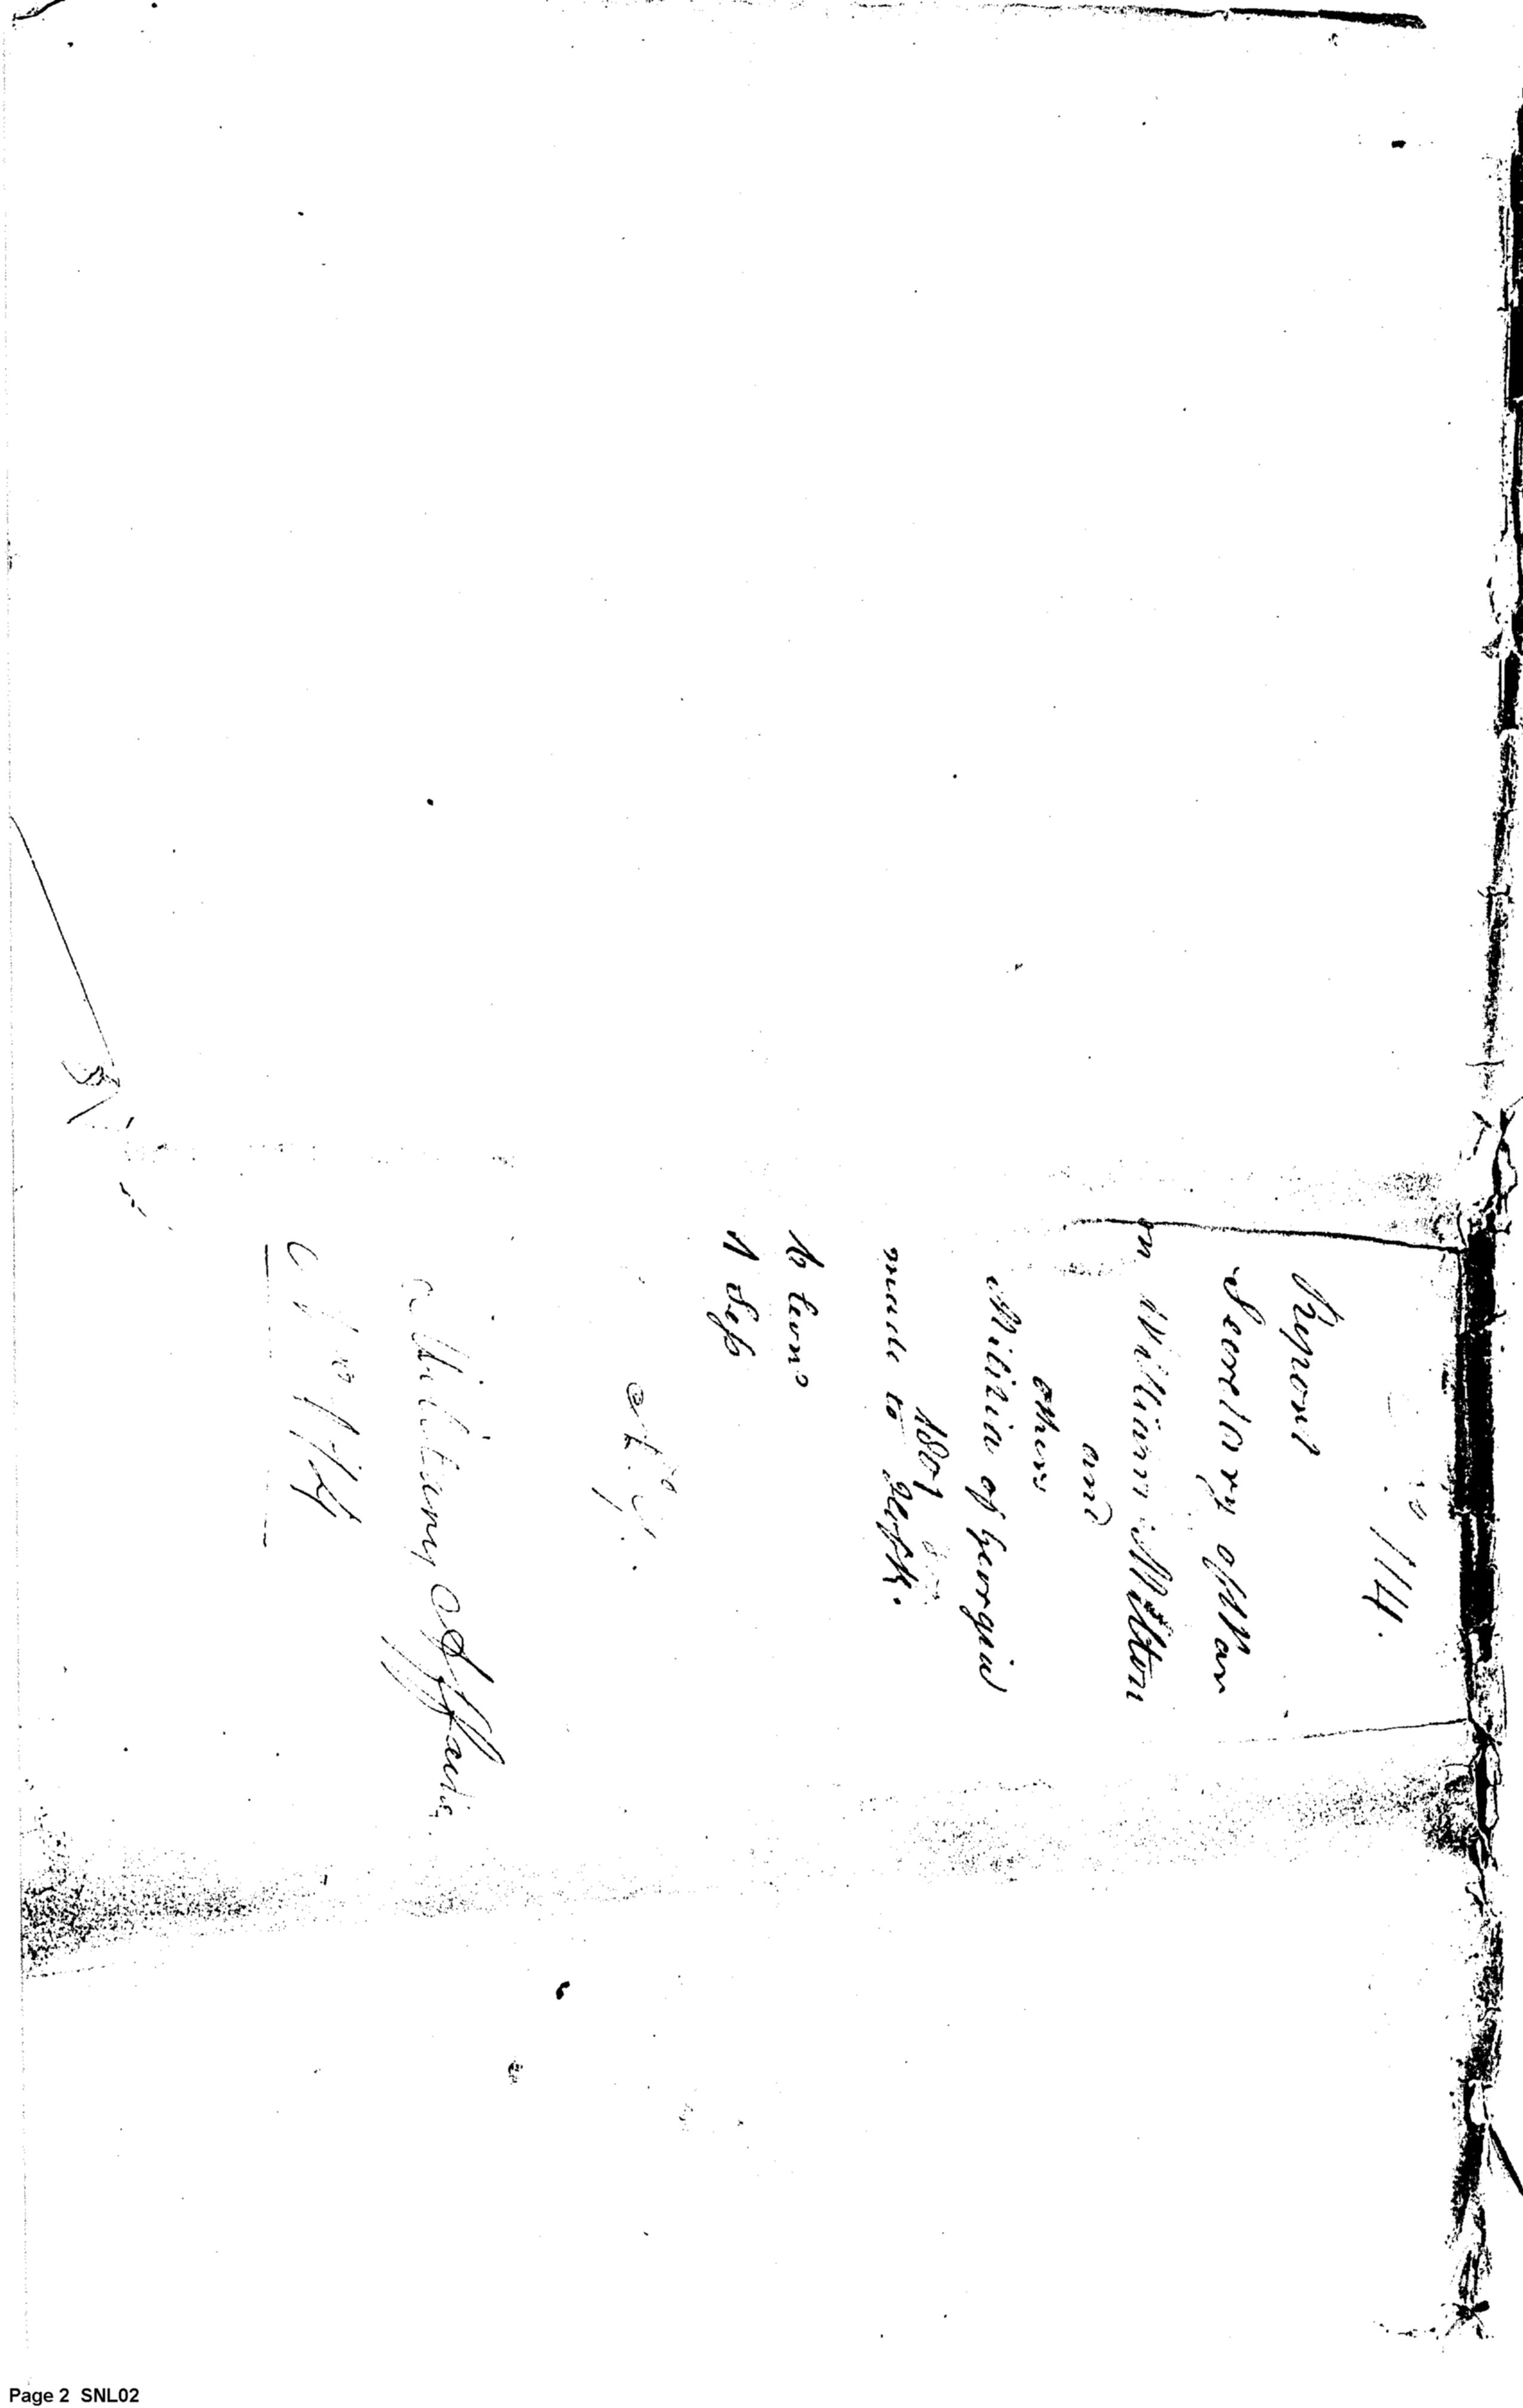 No 114.
Report
Secretary of War
on William Milton
and
others
Militia of Georgia
1801
made to
10
1 Sep
Military Affairs
No 114
Page 2 SNL02